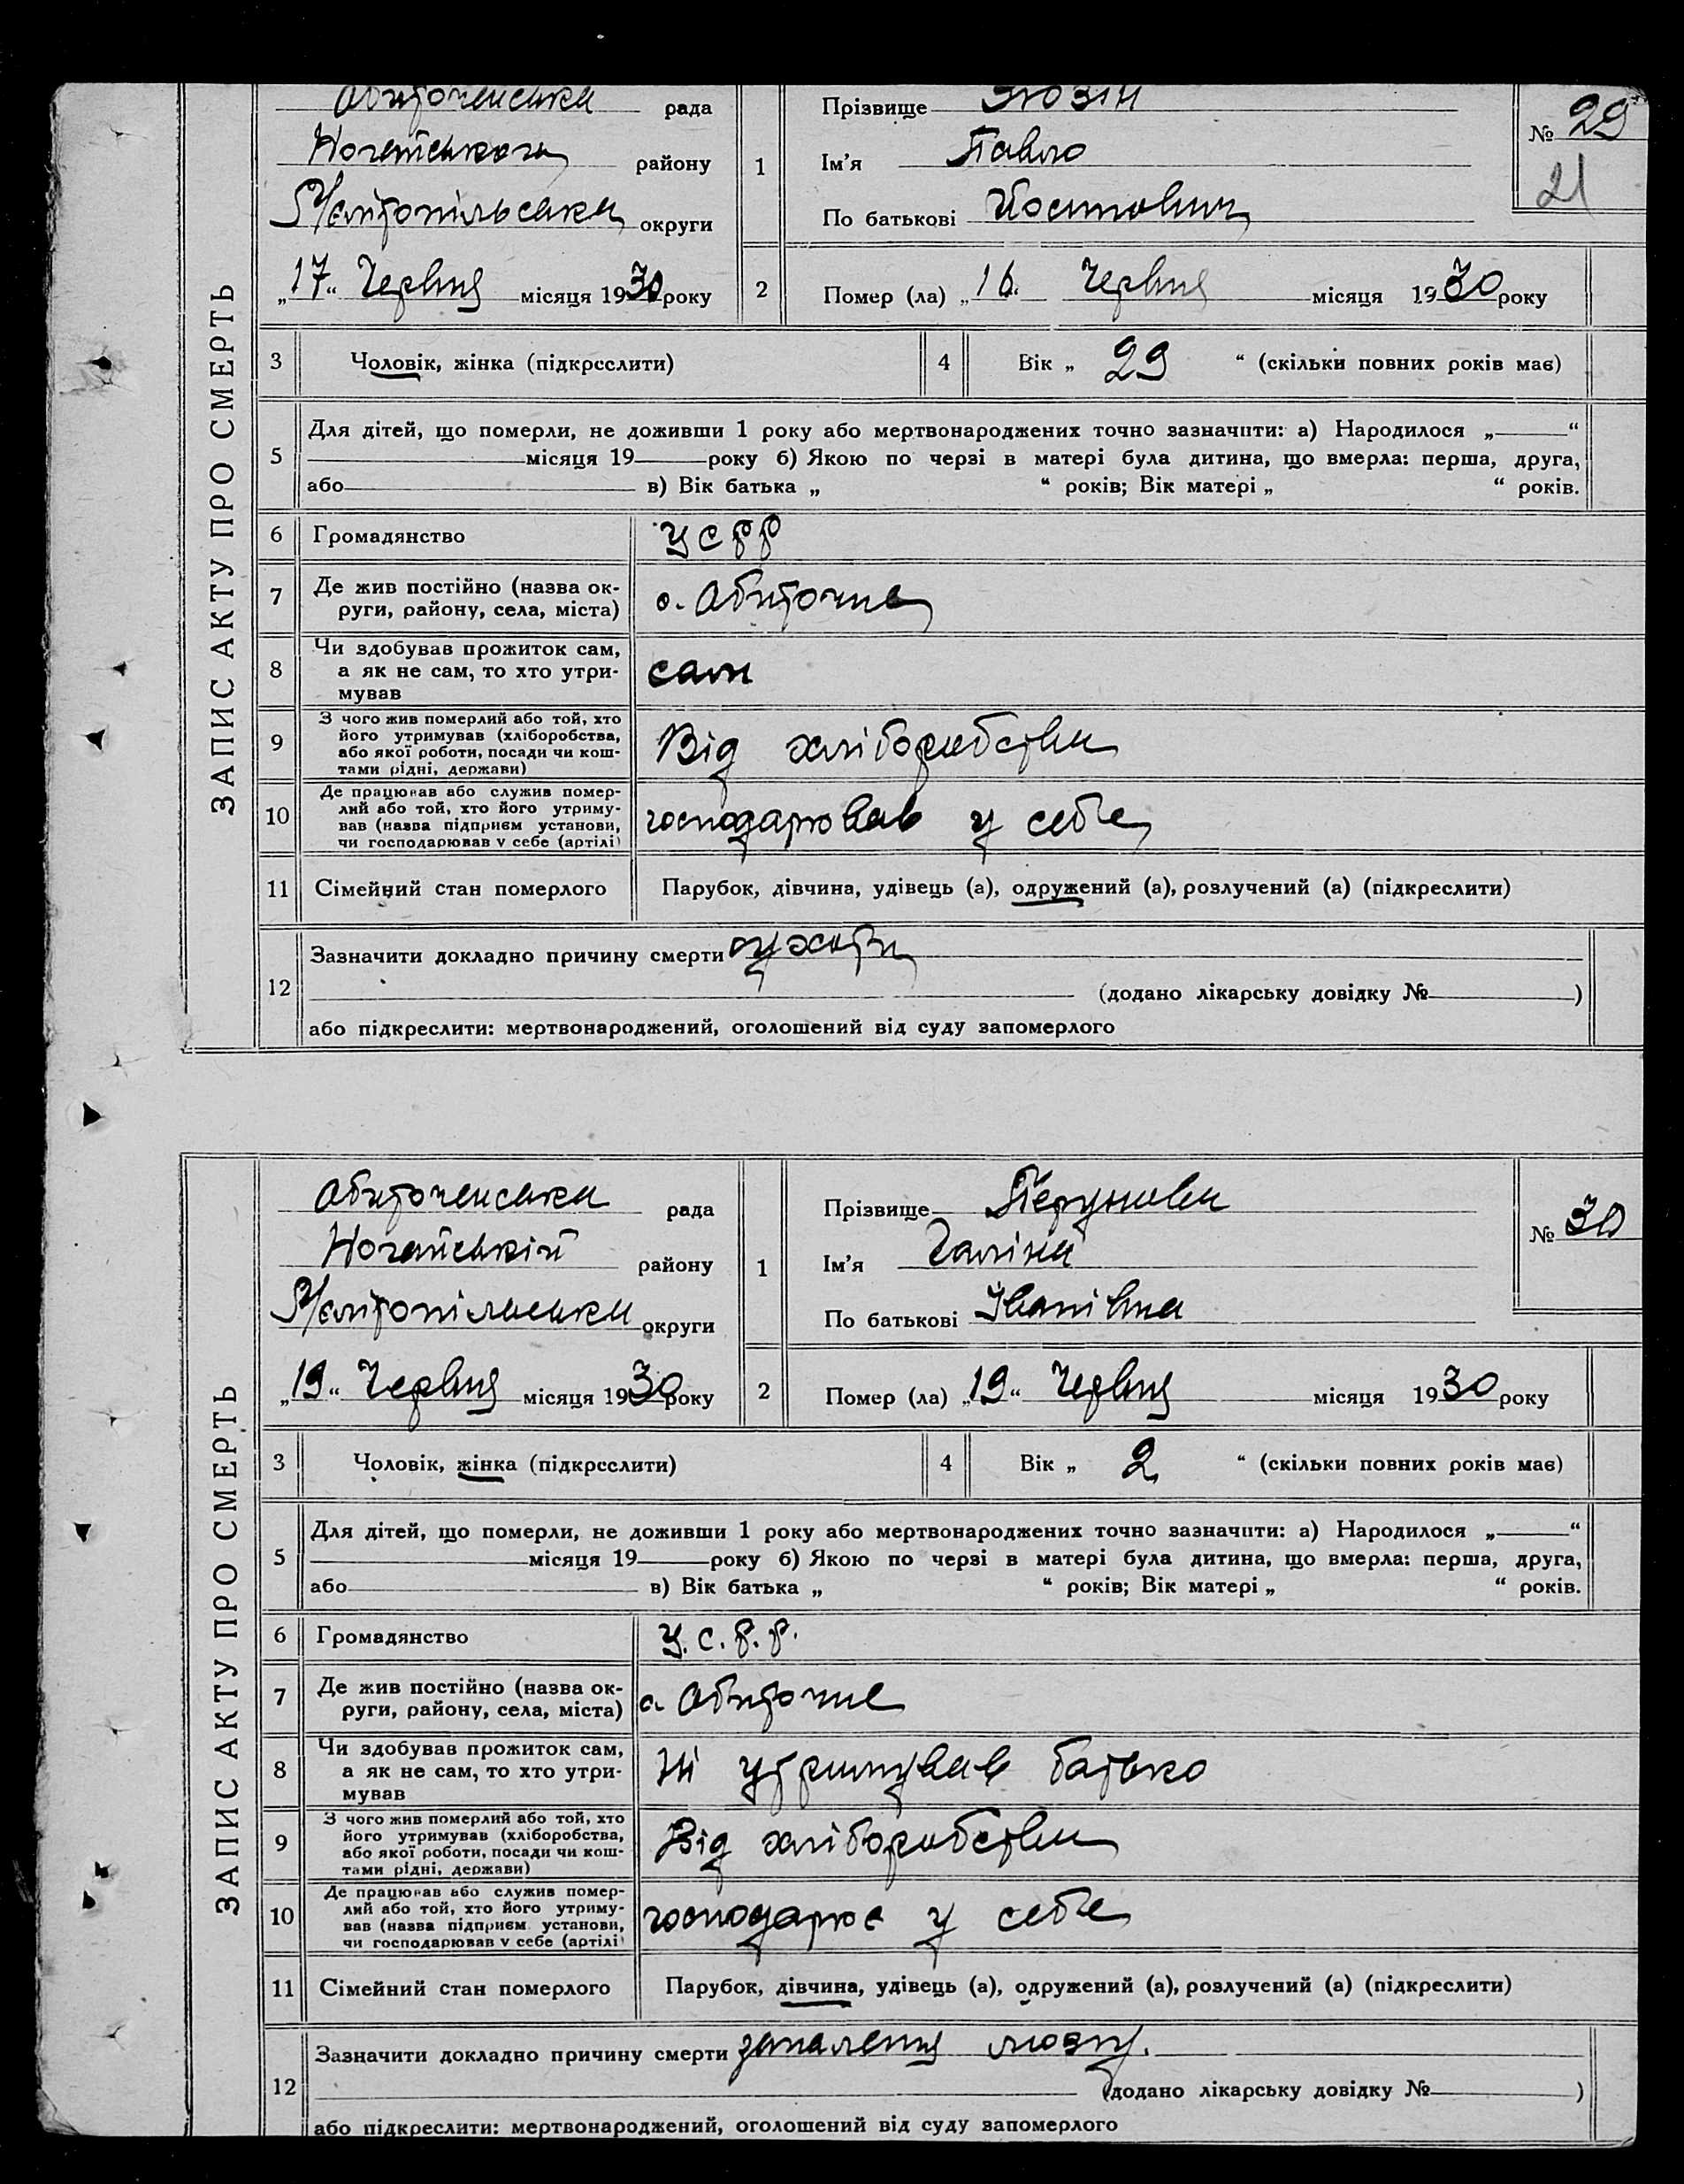 ЗАПИС АКТУ ПРО СМЕРТЬ
Обиточенська рада
Ногайського району
Мелітопільська округи
„17“ Червня місяця 1930 року
1
Прізвище
Ім’я Павло
По батькові Костович
№ 29
21
2
Помер (ла) „16“ Червня місяця 1930 року
3 Чоловік, жінка (підкреслити)
4 Вік „ 29 “ (скільки повних років має)
5 Для дітей, що померли, не доживши 1 року або мертвонароджених точно зазначити: а) Народилося „ “
місяця 19 року б) Якою по черзі в матері була дитина, що вмерла: перша, друга,
або в) Вік батька „ “ років; Вік матері „ “ років.
6 Громадянство УСРР
7 Де жив постійно (назва ок-
руги, району, села, міста) с. Обиточне
8 Чи здобував прожиток сам,
а як не сам, то хто утри-
мував сам
9 З чого жив померлий або той, хто
його утримував (хліборобства,
або якої роботи, посади чи кош-
тами рідні, держави) Від хліборобства
10 Де працював або служив помер-
лий або той, хто його утриму-
вав (назва підприєм установи,
чи господарював у себе (артілі) господарював у себе
11 Сімейний стан померлого Парубок, дівчина, удівець (а), одружений (а), розлучений (а) (підкреслити)
12 Зазначити докладно причину смерти сухоти
(додано лікарську довідку № )
або підкреслити: мертвонароджений, оголошений від суду запомерлого
ЗАПИС АКТУ ПРО СМЕРТЬ
Обиточенська рада
Ногайській району
Мелітопільська округи
„19“ Червня місяця 1930 року
1
Прізвище Перунова
Ім’я Галіна
По батькові Іванівна
№ 30
2
Помер (ла) „19“ Червня місяця 1930 року
3 Чоловік, жінка (підкреслити)
4 Вік „ 2 “ (скільки повних років має)
5 Для дітей, що померли, не доживши 1 року або мертвонароджених точно зазначити: а) Народилося „ “
місяця 19 року б) Якою по черзі в матері була дитина, що вмерла: перша, друга,
або в) Вік батька „ “ років; Вік матері „ “ років.
6 Громадянство У.С.Р.Р.
7 Де жив постійно (назва ок-
руги, району, села, міста) с. Обиточне
8 Чи здобував прожиток сам,
а як не сам, то хто утри-
мував Ні утримував батько
9 З чого жив померлий або той, хто
його утримував (хліборобства,
або якої роботи, посади чи кош-
тами рідні, держави) Від хліборобства
10 Де працював або служив помер-
лий або той, хто його утриму-
вав (назва підприєм. установи,
чи господарював у себе (артілі) господарює у себе
11 Сімейний стан померлого Парубок, дівчина, удівець (а), одружений (а), розлучений (а) (підкреслити)
12 Зазначити докладно причину смерти запалення мозгу.
(додано лікарську довідку № )
або підкреслити: мертвонароджений, оголошений від суду запомерлого